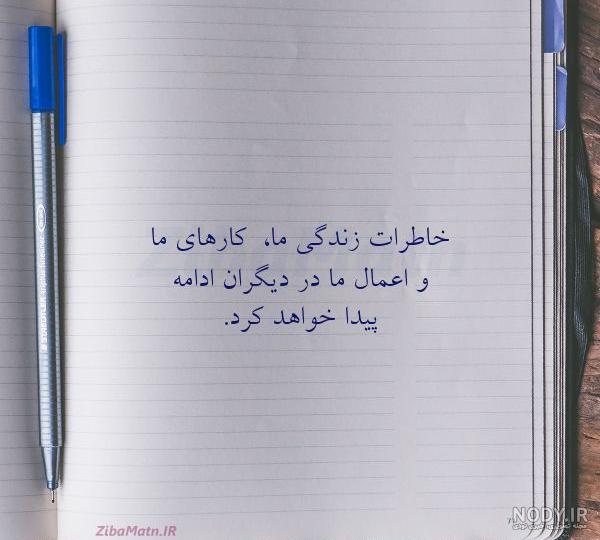 خاطرات زندگی ما، کارهای ما
و اعمال ما در دیگران ادامه
پیدا خواهد کرد.
ZibaMatn.IR
NODY.IR